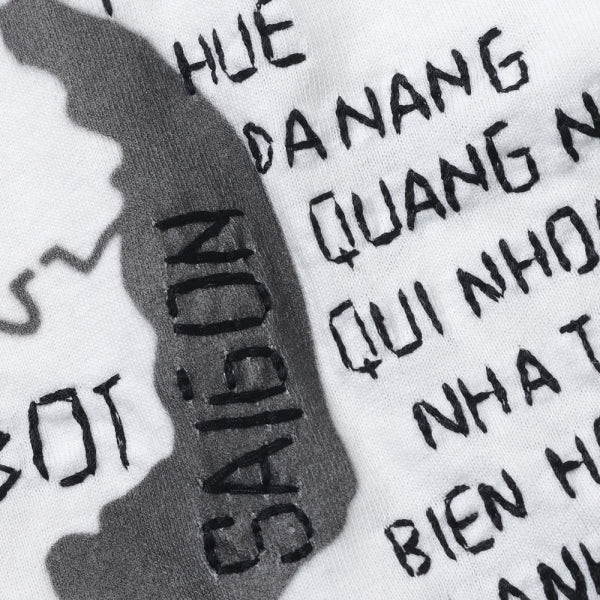 HUE
DA NANG
QUANG N
QUI NHO
NHA T
BIEN H
ANK
SAIGON
BOT